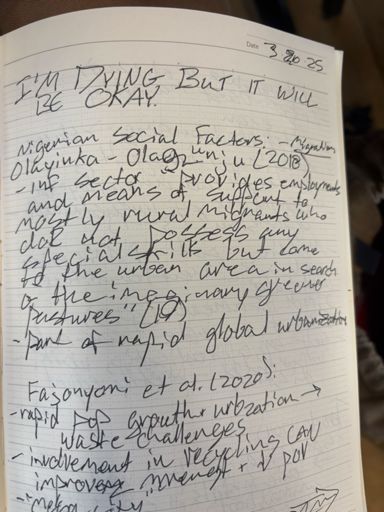 Date 3 20 25
I'M DYING BUT IT WILL
BE OKAY.
Nigerian Social Factors: - Migration
Olayinka - Olagunju (2018)
- inf sector "provides employments
and means of support to
mostly rural migrants who
do not possess any
special skills but come
to the urban area in search
of the imaginary greener
pastures" (19)
- part of rapid global urbanization
Fasonyomi et al. (2020):
- rapid pop growth + urbzation →
waste challenges
- involvement in recycling CAN
improve + ↓ pov
- "mega city"